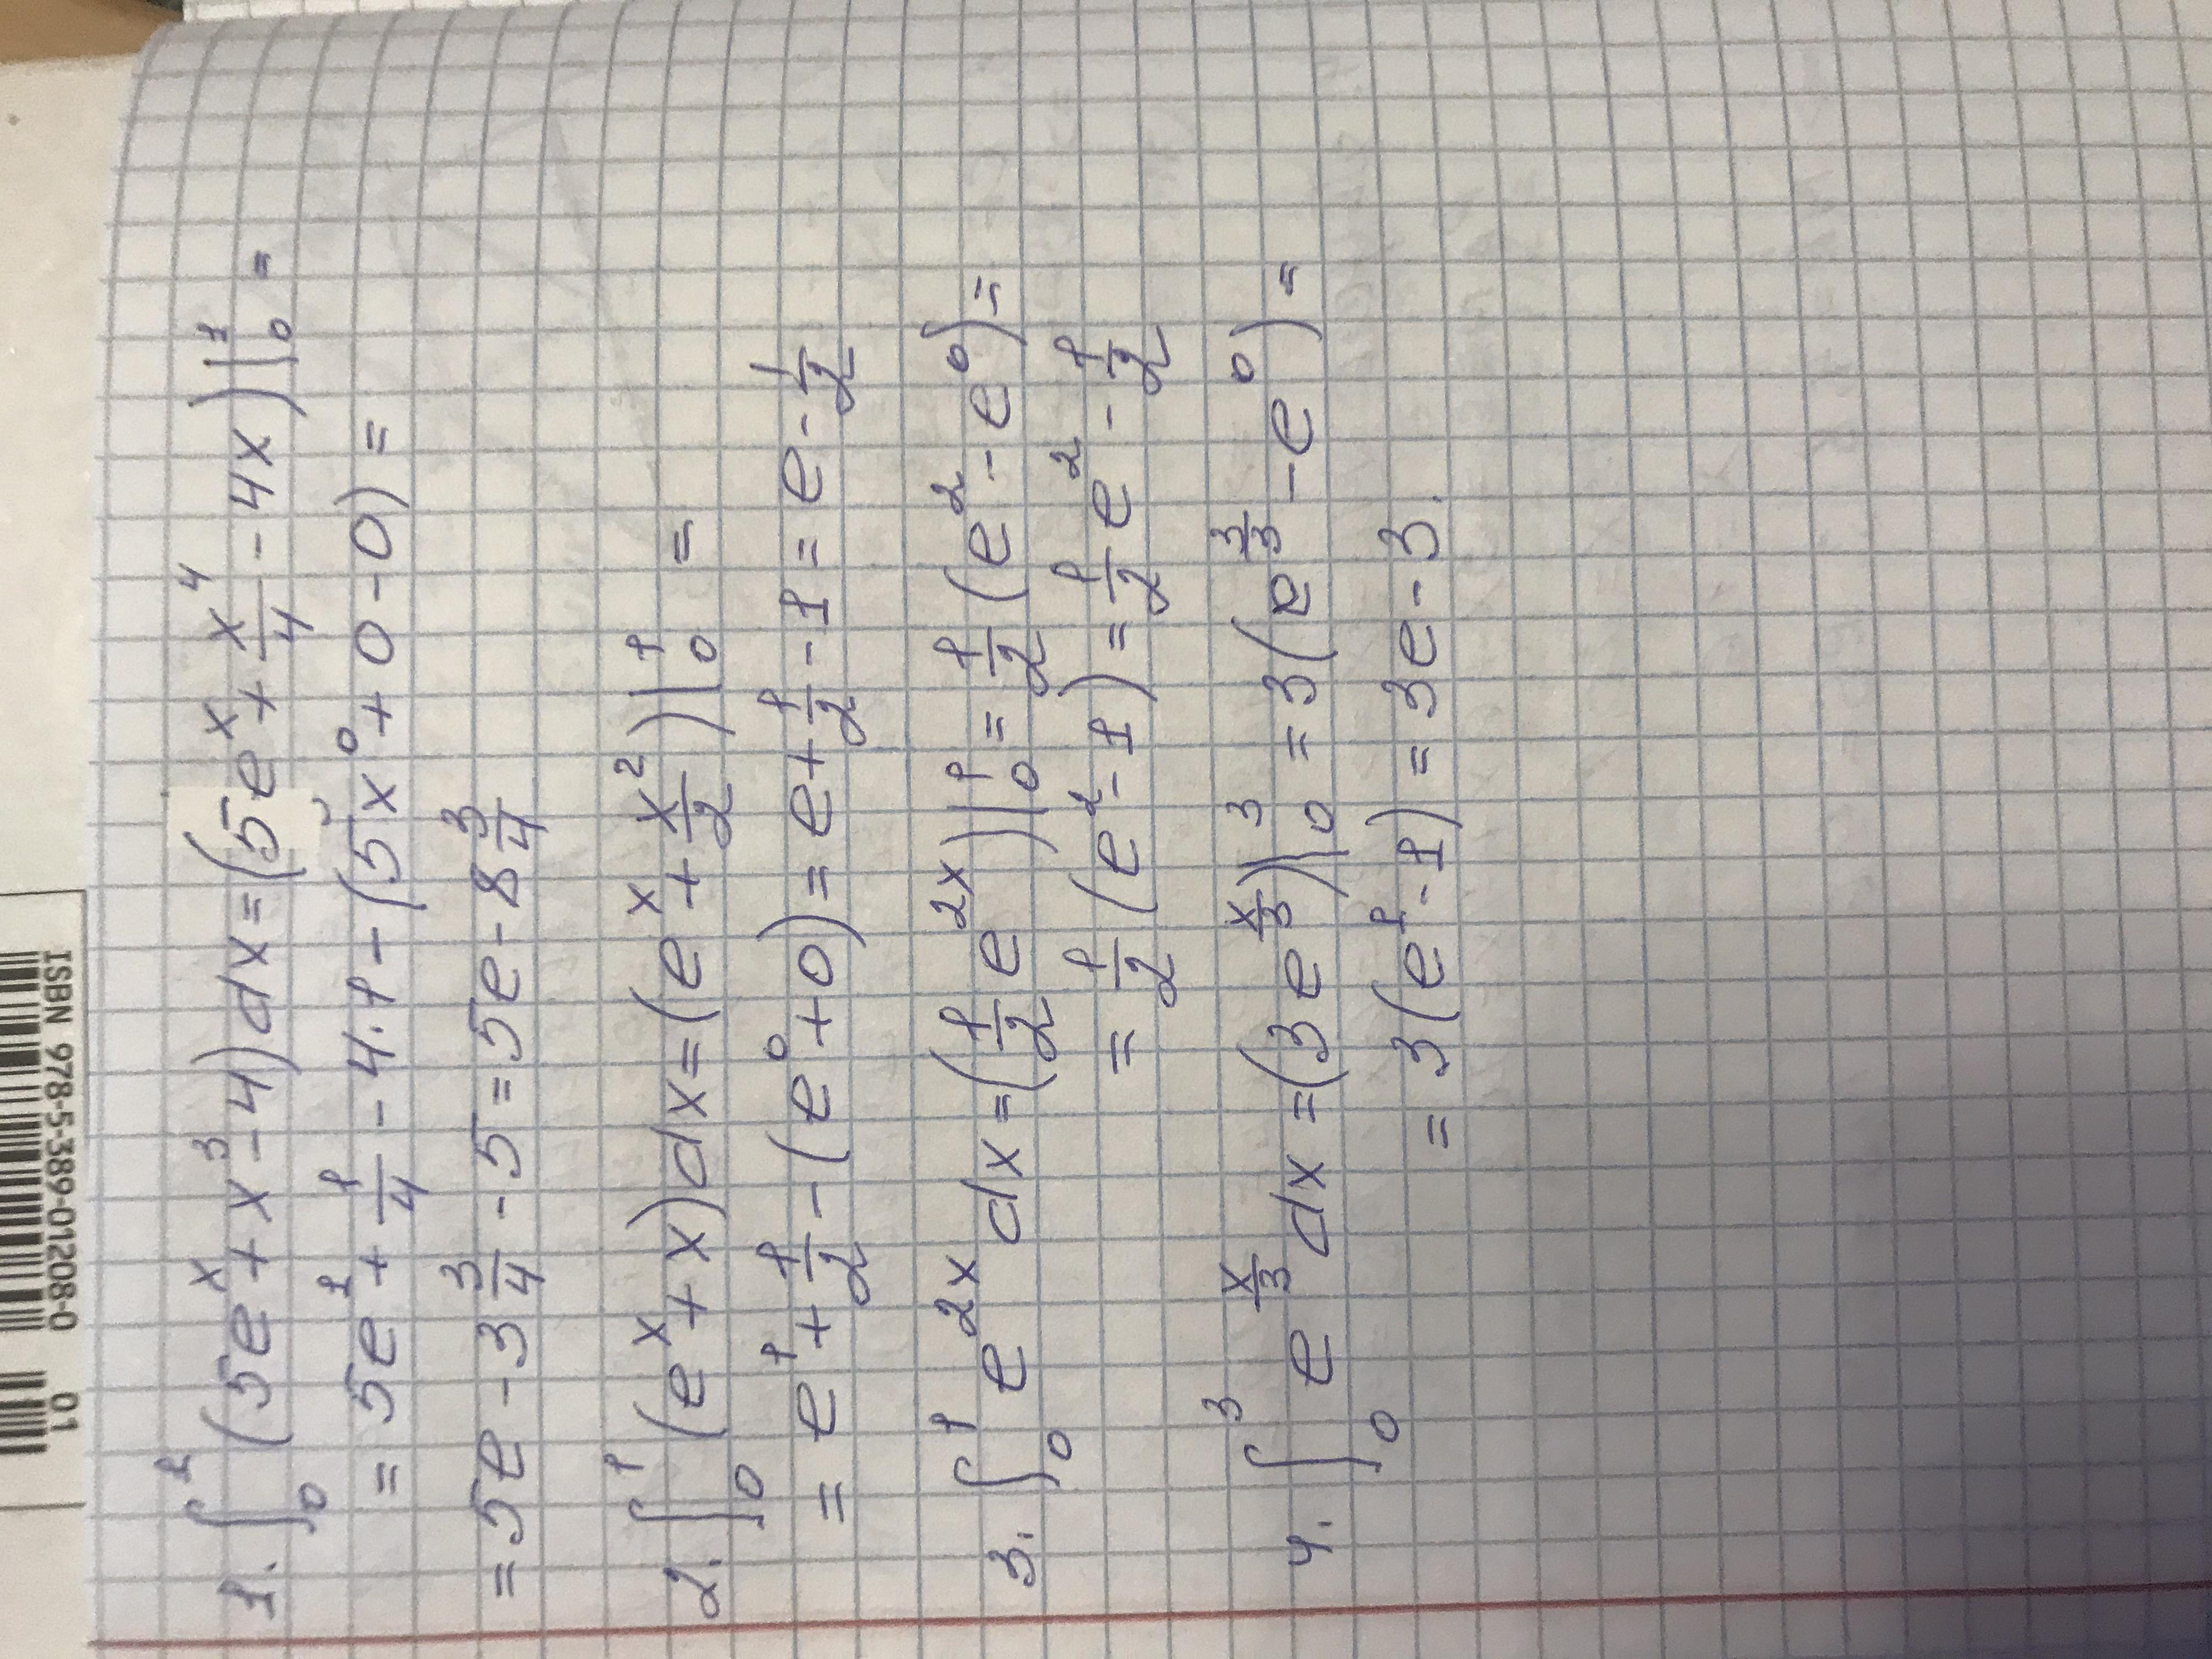 ISBN 978-5-389-01208-0
01
1. ∫₀¹ (5eˣ + x³ - 4)dx = (5eˣ + x⁴/4 - 4x)|₀¹ =
= 5e¹ + 1/4 - 4·1 - (5x⁰ + 0 - 0) =
= 5e - 3 3/4 - 5 = 5e - 8 3/4
2. ∫₀¹ (eˣ + x)dx = (eˣ + x²/2)|₀¹ =
= e¹ + 1/2 - (e⁰ + 0) = e + 1/2 - 1 = e - 1/2
3. ∫₀¹ e²ˣ dx = (1/2 e²ˣ)|₀¹ = 1/2 (e² - e⁰) =
= 1/2 (e² - 1) = 1/2 e² - 1/2
4. ∫₀³ e^(x/3) dx = (3e^(x/3))|₀³ = 3(e^(3/3) - e⁰) =
= 3(e¹ - 1) = 3e - 3.